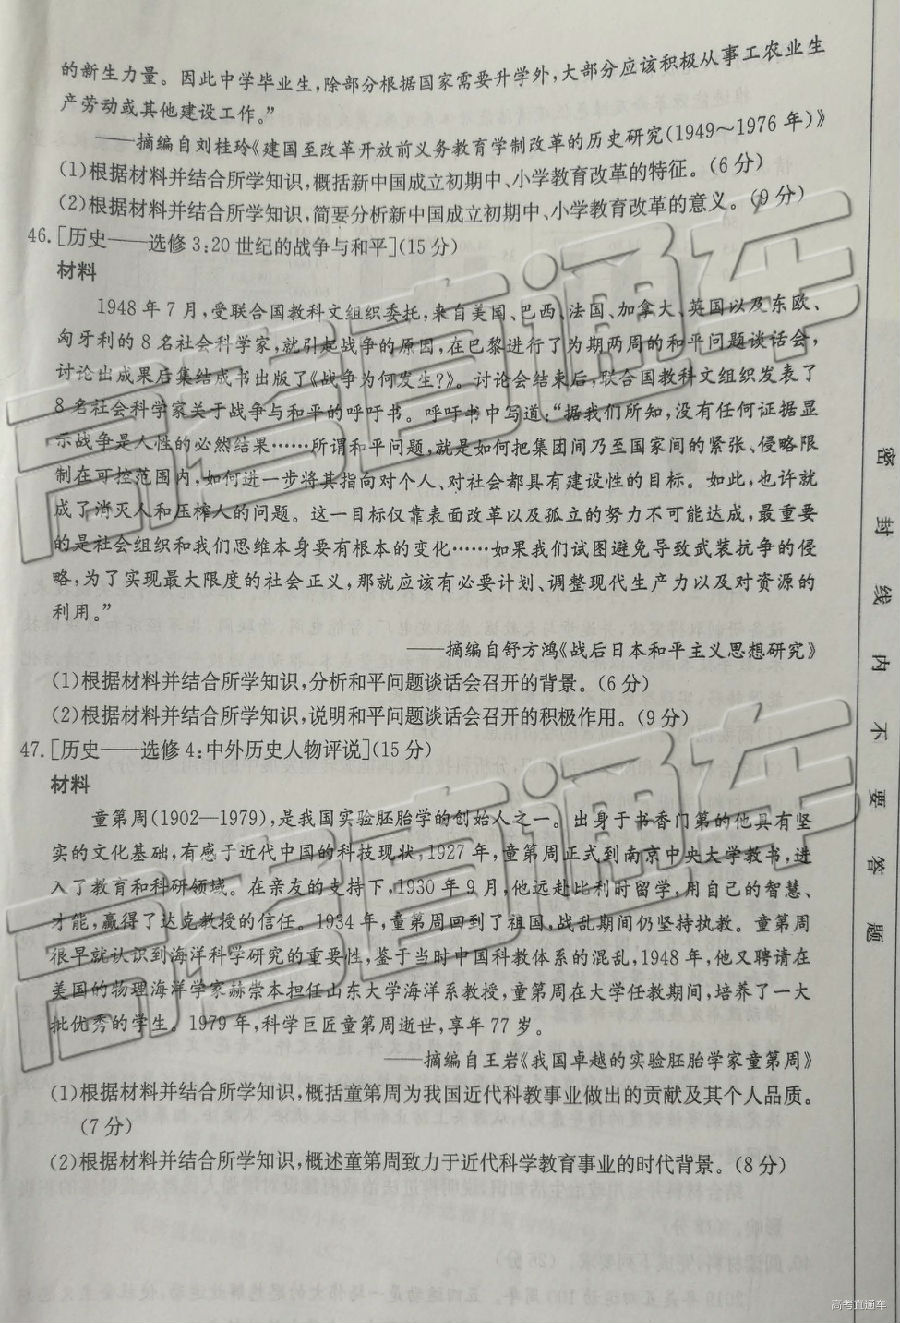 的新生力量。因此中学毕业生,除部分根据国家需要升学外,大部分应该积极从事工农业生
产劳动或其他建设工作。”
——摘编自刘桂玲《建国至改革开放前义务教育学制改革的历史研究(1949~1976年)》
(1)根据材料并结合所学知识,概括新中国成立初期中、小学教育改革的特征。(6分)
(2)根据材料并结合所学知识,简要分析新中国成立初期中、小学教育改革的意义。(9分)
46.[历史——选修3:20世纪的战争与和平](15分)
材料
1948年7月,受联合国教科文组织委托,来自美国、巴西、法国、加拿大、英国以及东欧、
匈牙利的8名社会科学家,就引起战争的原因,在巴黎进行了为期两周的和平问题谈话会,
讨论出成果后集结成书出版了《战争为何发生?》。讨论会结束后,联合国教科文组织发表了
8名社会科学家关于战争与和平的呼吁书。呼吁书中写道:“据我们所知,没有任何证据显
示战争是人性的必然结果……所谓和平问题,就是如何把集团间乃至国家间的紧张、侵略限
制在可控范围内,如何进一步将其指向对个人、对社会都具有建设性的目标。如此,也许就
成了消灭人和压榨人的问题。这一目标仅靠表面改革以及孤立的努力不可能达成,最重要
的是社会组织和我们思维本身要有根本的变化……如果我们试图避免导致武装抗争的侵
略,为了实现最大限度的社会正义,那就应该有必要计划、调整现代生产力以及对资源的
利用。”
——摘编自舒方鸿《战后日本和平主义思想研究》
(1)根据材料并结合所学知识,分析和平问题谈话会召开的背景。(6分)
(2)根据材料并结合所学知识,说明和平问题谈话会召开的积极作用。(9分)
47.[历史——选修4:中外历史人物评说](15分)
材料
童第周(1902—1979),是我国实验胚胎学的创始人之一。出身于书香门第的他具有坚
实的文化基础,有感于近代中国的科技现状,1927年,童第周正式到南京中央大学教书,进
入了教育和科研领域。在亲友的支持下,1930年9月,他远赴比利时留学,用自己的智慧、
才能,赢得了达克教授的信任。1934年,童第周回到了祖国,战乱期间仍坚持执教。童第周
很早就认识到海洋科学研究的重要性,鉴于当时中国科教体系的混乱,1948年,他又聘请在
美国的物理海洋学家赫崇本担任山东大学海洋系教授,童第周在大学任教期间,培养了一大
批优秀的学生。1979年,科学巨匠童第周逝世,享年77岁。
——摘编自王岩《我国卓越的实验胚胎学家童第周》
(1)根据材料并结合所学知识,概括童第周为我国近代科教事业做出的贡献及其个人品质。
(7分)
(2)根据材料并结合所学知识,概述童第周致力于近代科学教育事业的时代背景。(8分)
密封线内不要答题
高考直通车
高考直通车
高考直通车